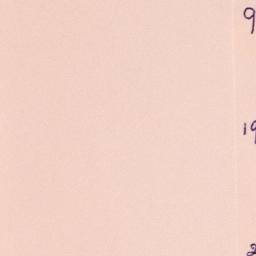 9
19
2